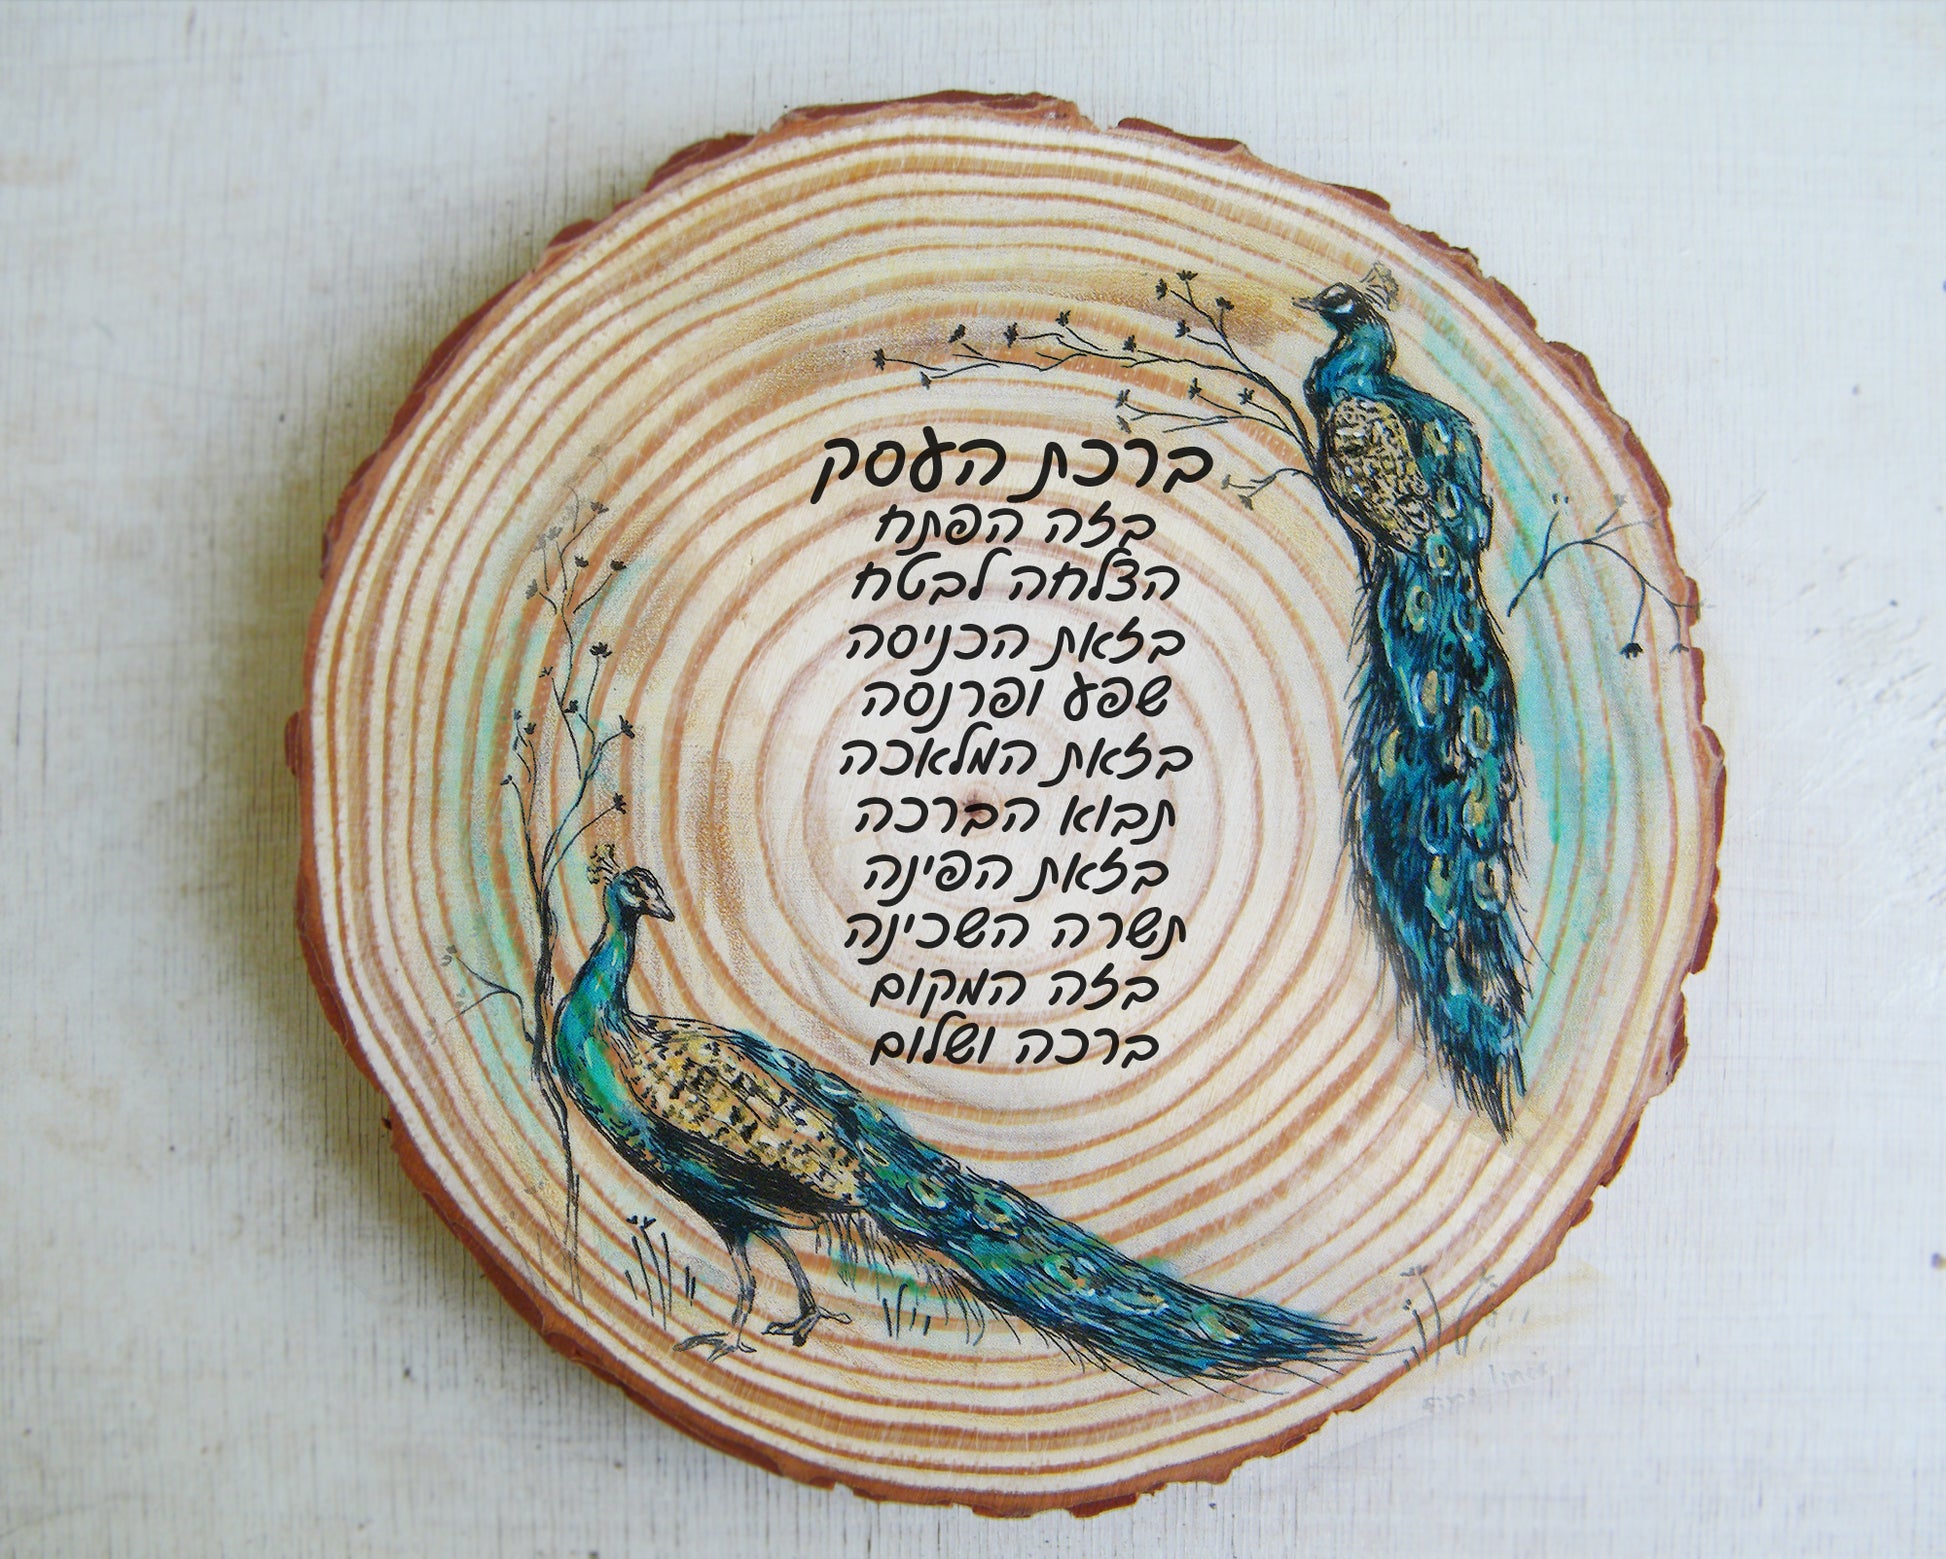 ברכת העסק
בזה הפתח
הצלחה לבטח
בזאת הכניסה
שפע ופרנסה
בזאת המלאכה
תבוא הברכה
בזאת הפינה
תשרה השכינה
בזה המקום
ברכה ושלום